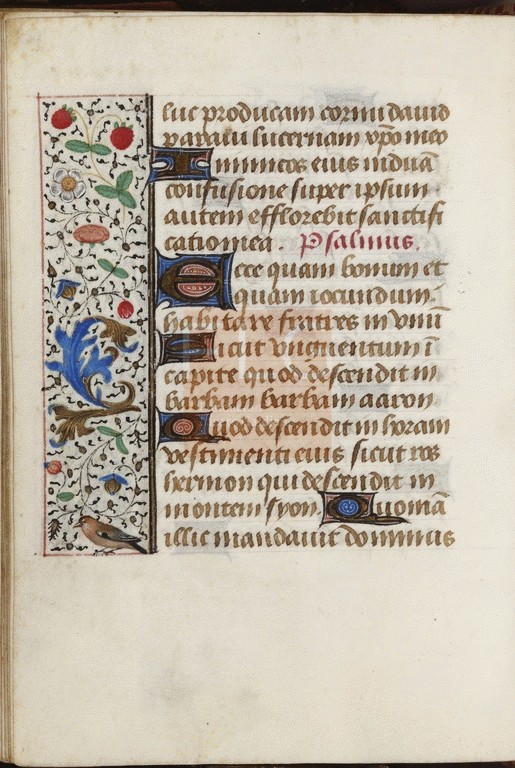 luc producam cornu dauid
paraui lucernam xpo meo
Inimicos eius induā
confusione super ipsum
autem efflorebit sanctifi
catio mea. Psalmus.
Ecce quam bonum et
quam iocundum
habitare fratres in vnū
Sicut vnguentum ī
capite quod descendit in
barbam barbam aaron
Quod descendit in horam
vestimenti eius sicut ros
hermon qui descendit in
montem syon. Quoniā
illic mandauit dominus